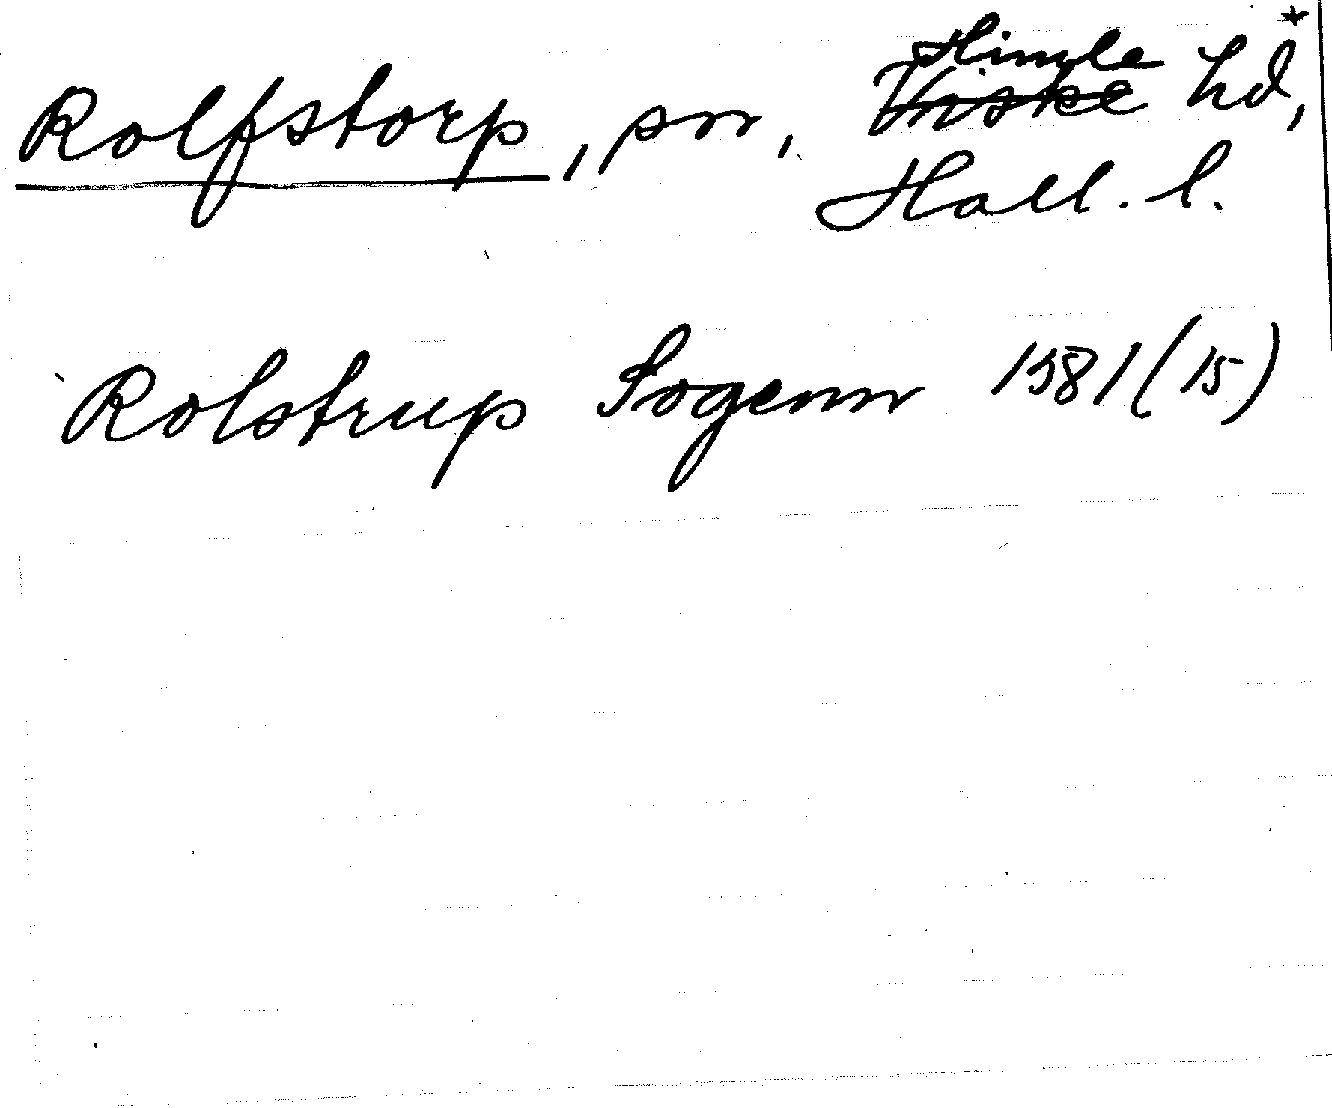 Rolfstorp, sn, Himle hd, *
Hall. l.
Rolstrup Sogenn 1581 (15)